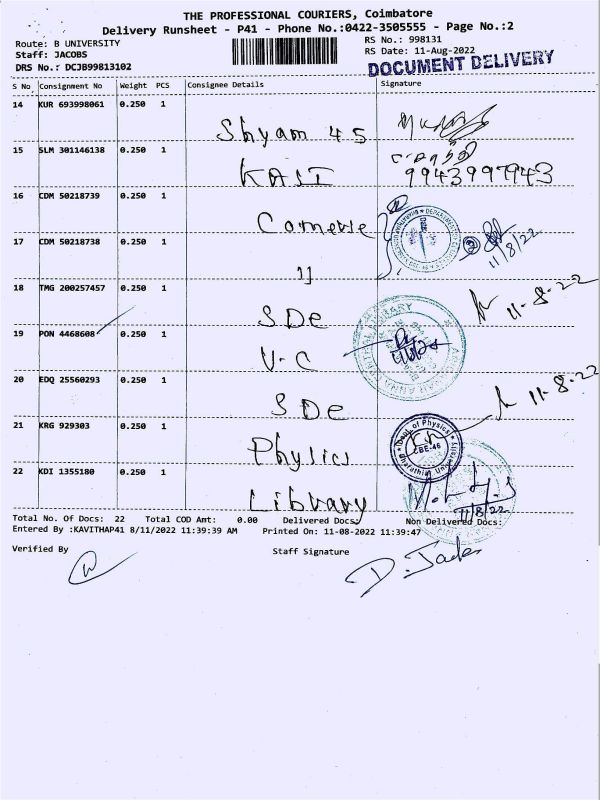 THE PROFESSIONAL COURIERS, Coimbatore
Delivery Runsheet - P41 - Phone No.:0422-3505555 - Page No.:2
Route: B UNIVERSITY RS No.: 998131
Staff: JACOBS RS Date: 11-Aug-2022
DRS No.: DCJB99813102 DOCUMENT DELIVERY
S No Consignment No Weight PCS Consignee Details Signature
14 KUR 693998061 0.250 1 Shyam 45
15 SLM 301146138 0.250 1 KASI 9943997943
16 CDM 50218739 0.250 1 11/8/22
17 CDM 50218738 0.250 1 11
18 TMG 200257457 0.250 1 SDe 11-8-22
19 PON 4468608 0.250 1 V-C
20 EDQ 25560293 0.250 1 SDe 11-8-22
21 KRG 929303 0.250 1 Physics Dept. of Physics CBE-46 Bharathiar University
22 KDI 1355180 0.250 1 Library 11/8/22
Total No. Of Docs: 22 Total COD Amt: 0.00 Delivered Docs: Non Delivered Docs:
Entered By :KAVITHAP41 8/11/2022 11:39:39 AM Printed On: 11-08-2022 11:39:47
Verified By Staff Signature